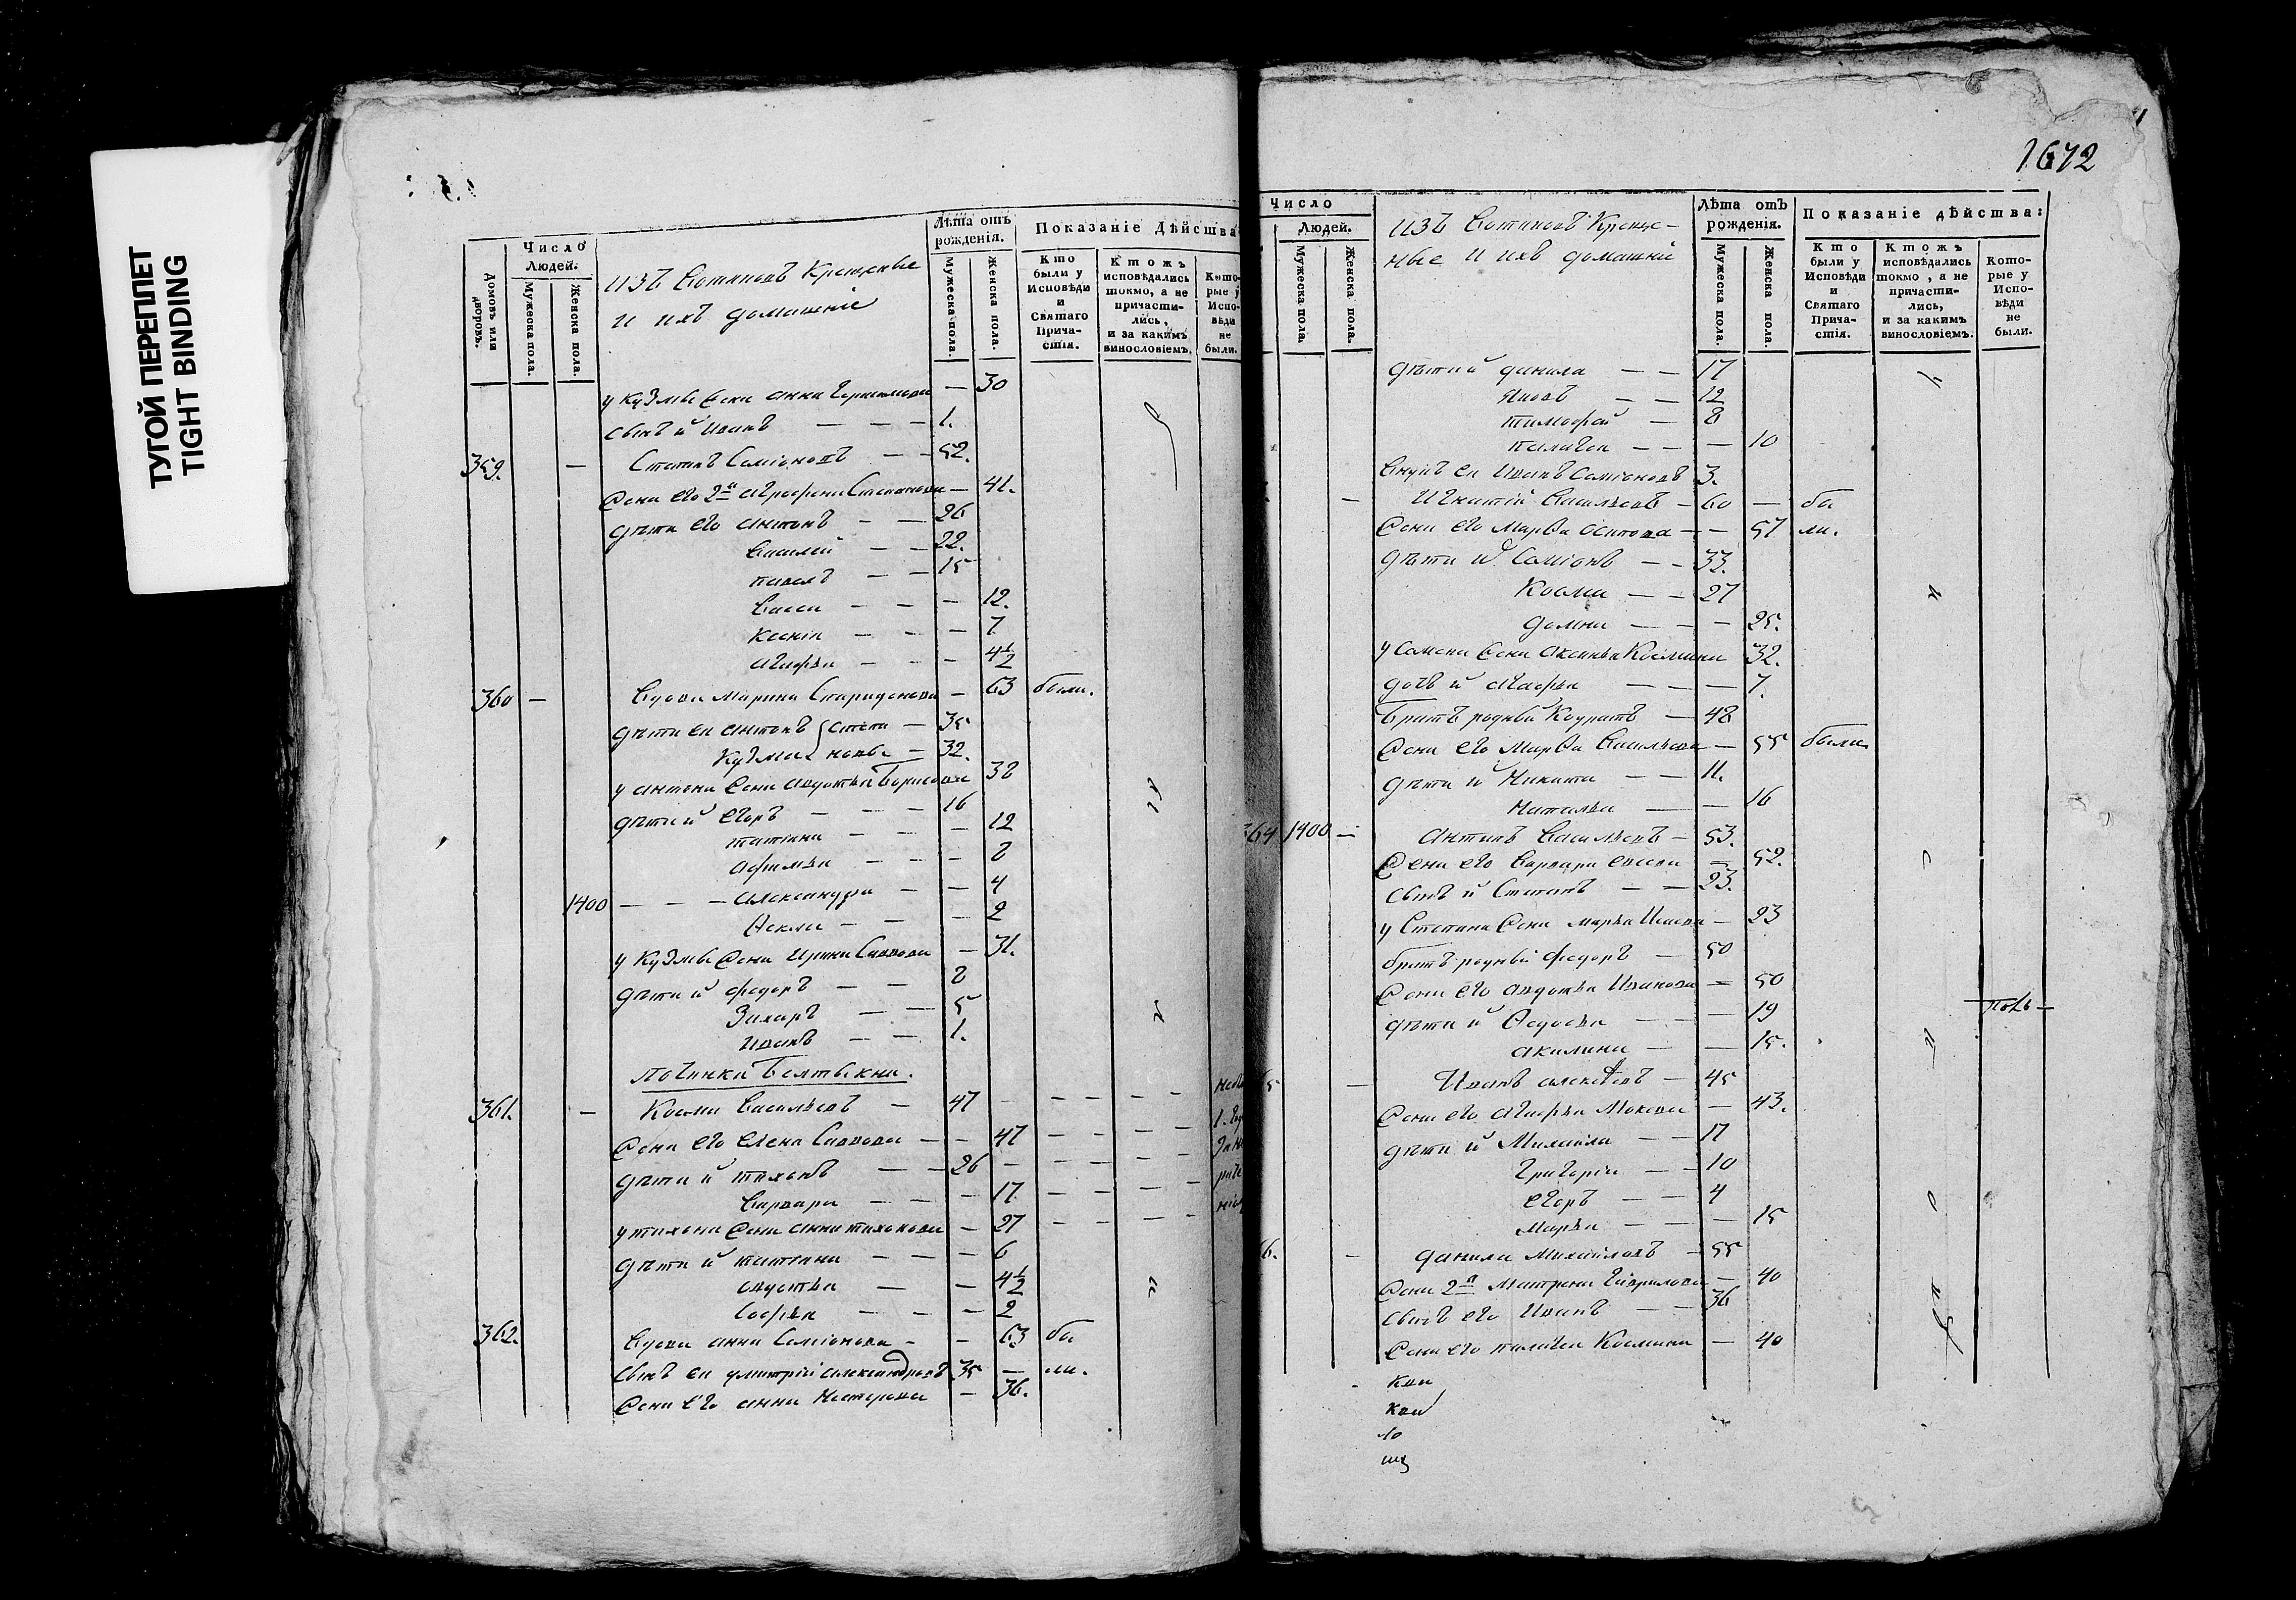 ТУГОЙ ПЕРЕПЛЕТ
TIGHT BINDING
Домовъ или дворовъ.
Число Людей.
Мужеска пола.
Женска пола.
изъ Вотяковъ Крещеные
и ихъ домашніе
Лѣта отъ рожденія.
Мужеска пола.
Женска пола.
Показаніе Дѣйства
Кто были у Исповѣди и Святаго Причастія.
Ктожъ исповѣдались токмо, а не причастились, и за какимъ винословіемъ.
Которые у Исповѣди не были.
у Кузмы жена Анна — 30
сынъ и Иванъ — — — 1.
359. — Степанъ Саміоновъ — — 52.
жена его 2я Агрофена Степанова — 41.
дѣти его Антонъ — — 26
Василей — — 22.
Павелъ — — 15
Васса — — — 12.
Ксенія — — — 7
Агафья — — — 4½
360 — Вдова Марина Спиридонова — 63 были.
дѣти ея Антонъ } Степа — 35
Кузма } новы — 32.
у Антона жена Авдотья Борисова 38
дѣти и Егоръ — — — 16
Татіана — — — 12
Афимья — — — 8
1400 — — — Александра — — 4
Ѳекла — — — 2
у Кузмы жена Ирина Саввова — 31.
дѣти и Федоръ — — 8
Захаръ — — 5
Иванъ — — 1.
Починка Белтыкна.
361. — Косма Васильевъ — 47 — — — —
жена его Елена Саввова — — 47 — — — —
дѣти и Тихонъ — — 26 — — — —
Варвара — — — 17 — — — —
у Тихона жена Анна Тихонова — 27 — — — —
дѣти и Татіана — — — 6
Авдотья — — 4½
Софья — — — 2
362. Вдова Анна Саміонова — — 63 бы
сынъ ея Дмитрій Александровъ 35 — ли.
жена его Анна Нестерова — 36.
1672
Число Людей.
Мужеска пола.
Женска пола.
изъ Вотяковъ Креще-
ные и ихъ домашніи
Лѣта отъ рожденія.
Мужеска пола.
Женска пола.
Показаніе дѣйства:
Кто были у Исповѣди и Святаго Причастія.
Ктожъ исповѣдались токмо, а не причастились, и за какимъ винословіемъ.
Которые у Исповѣди не были.
дѣти и Данила — — 17
Яковъ — — 12
Тимофей — 8
Палагея — — — 10
внукъ ея Иванъ Саміоновъ 3.
— Игнатій Васильевъ — 60 — бы
жена его Марѳа Осипова — — 57 ли.
дѣти и Саміонъ — — 33.
Косма — — 27
Домна — — — 25.
у Самена жена Аксинья Космина 32.
дочь и Агафья — — — 7.
Братъ родный Кодратъ — 48
жена его Марѳа Васильева — 55 были.
дѣти и Никита — — 11.
Наталья — — 16
364 1400 — Антипъ Васильевъ — 53.
жена его Варвара — 52.
сынъ и Степанъ — — 23.
у Степана жена Марья Исаева — 23
братъ родный Федоръ — 50
жена его Авдотья Иванова — 50
дѣти и Ѳедосья — — — 19
Акилина — — 15.
— Иванъ Алексѣевъ — 45
жена его Агафья Мокева — 43.
дѣти и Михайла — — 17
Григорій — — 10
Егоръ — — 4
Марья — — — 15
— Данила Михайловъ — 55
жена 2я Матрена Гаврилова — 40
сынъ его Иванъ — — 36
жена его Палагея Космина — 40